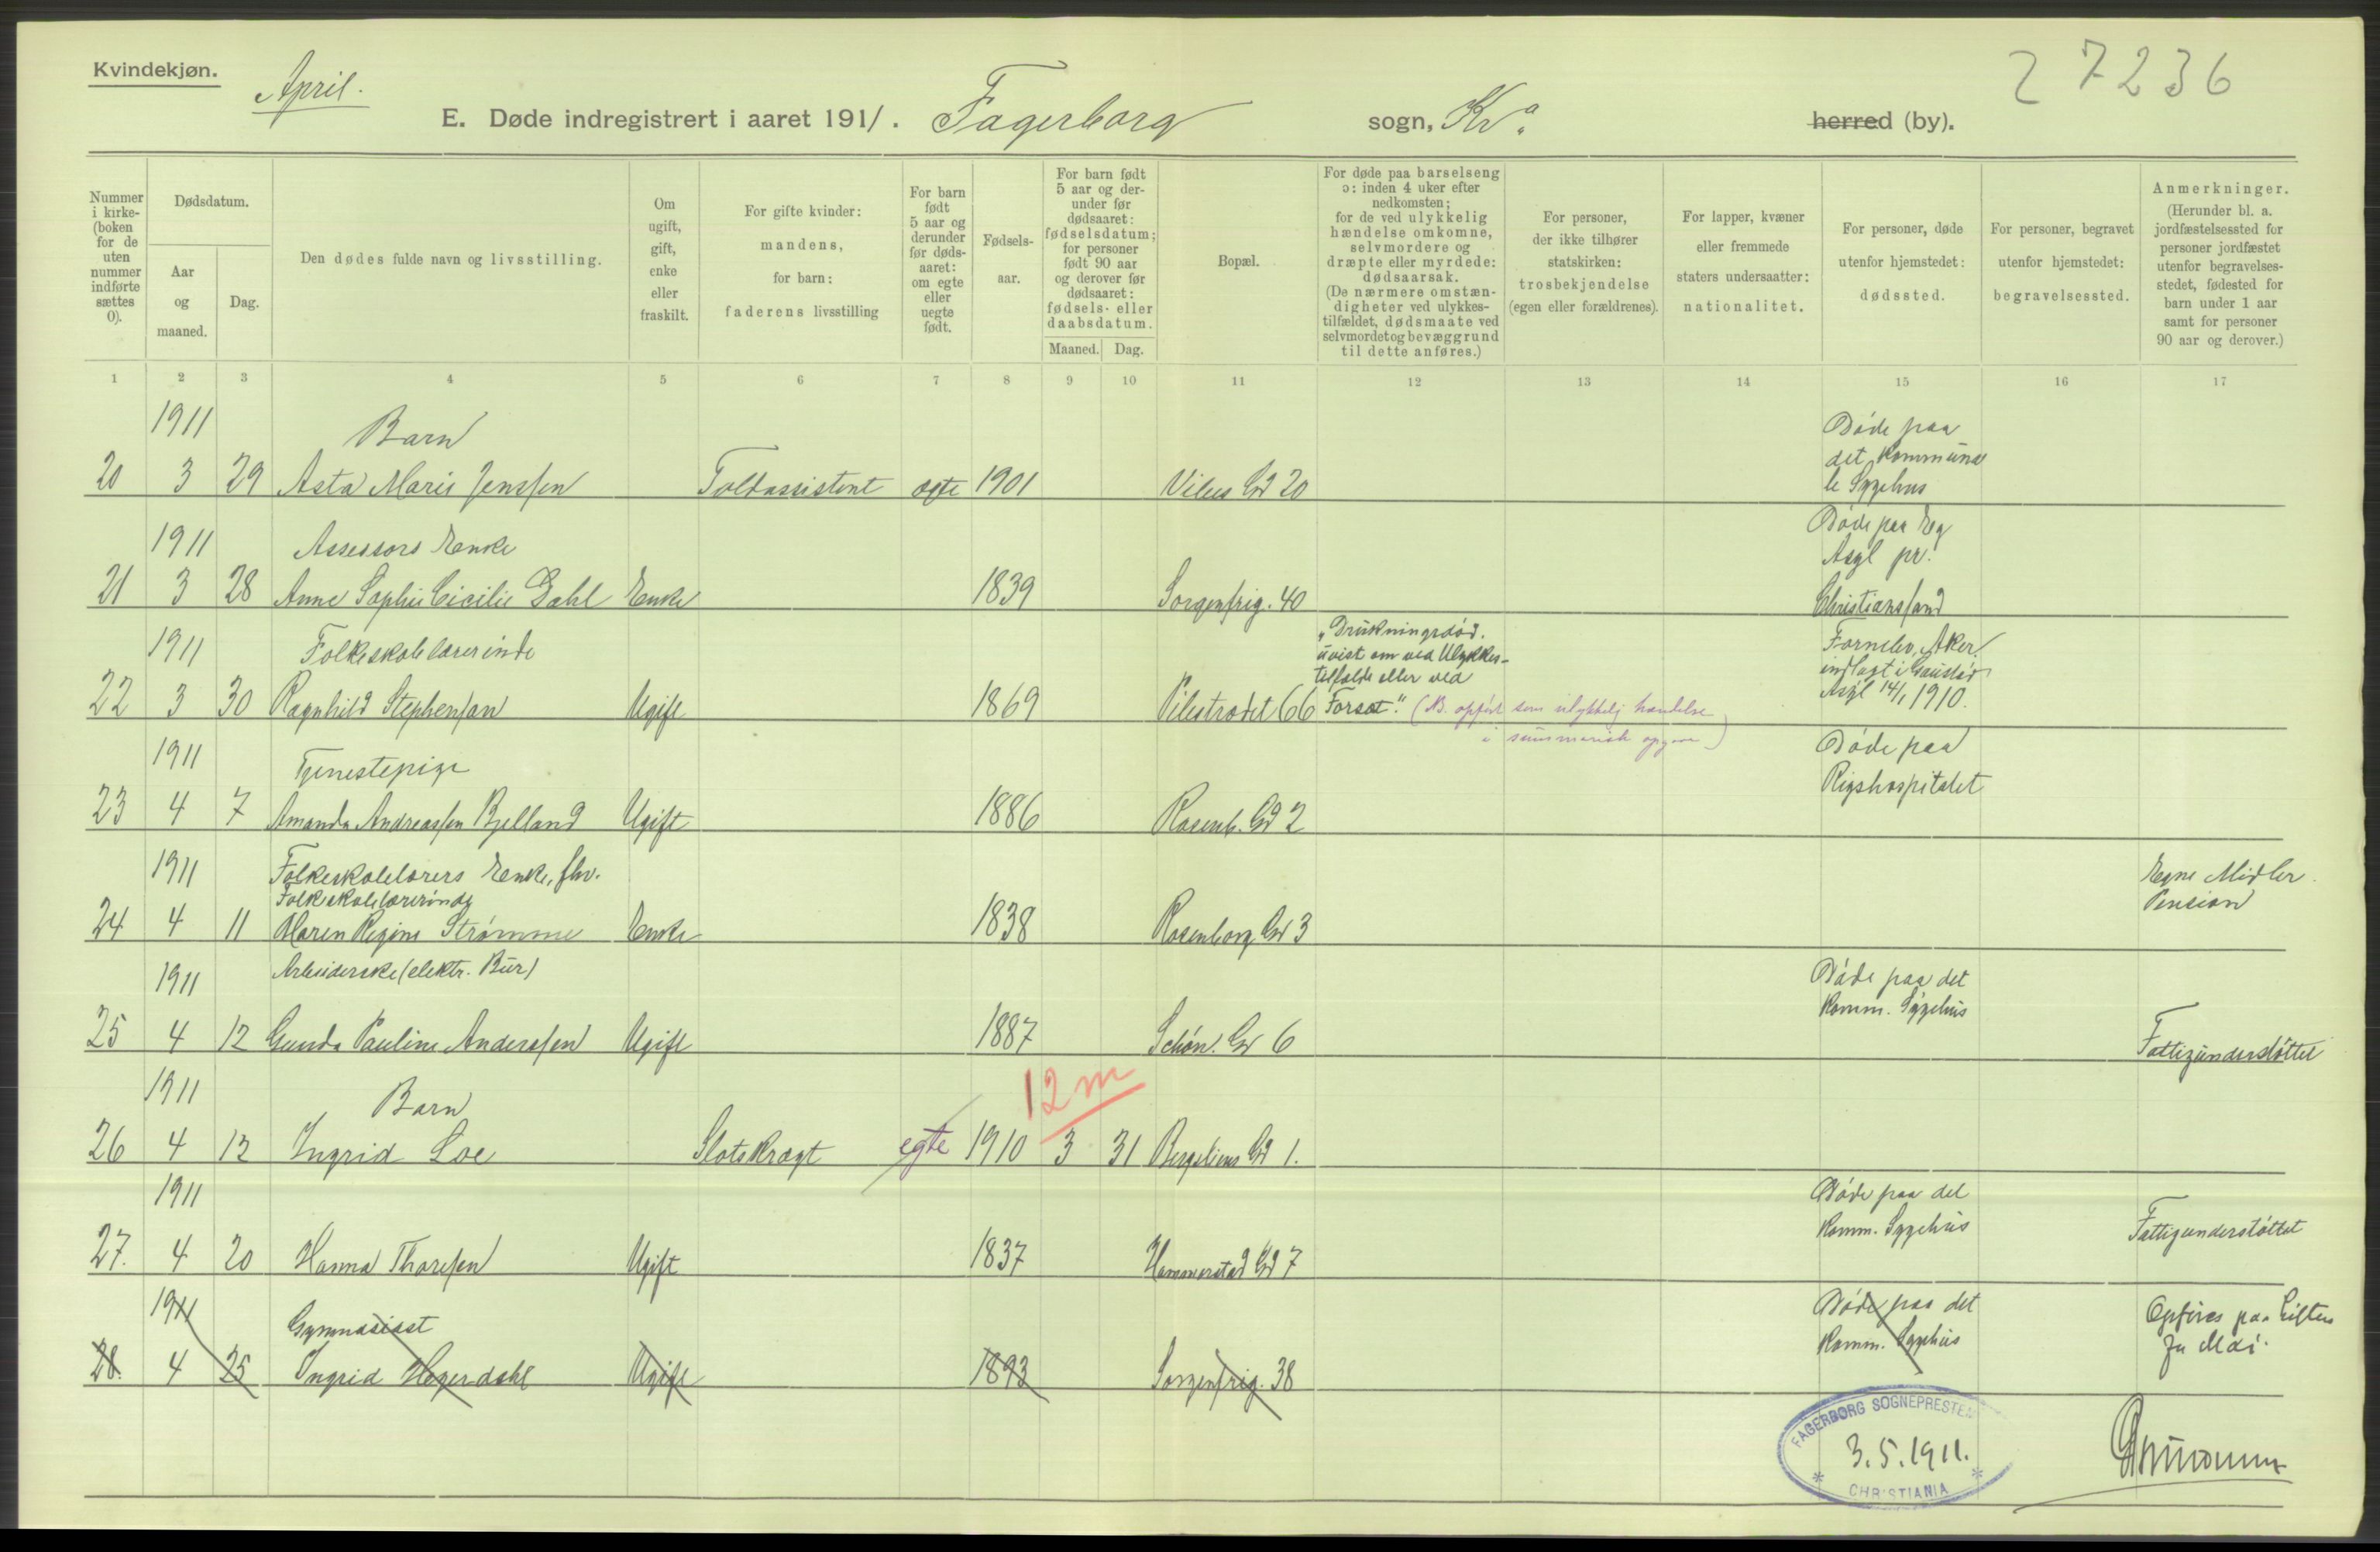 Kvindekjøn.
April.
27236
E. Døde indregistrert i aaret 1911. Fagerborg sogn, Kr.a herred (by).
Nummer i kirke- (boken for de uten nummer indførte sættes 0).
Dødsdatum.
Aar og maaned.
Dag.
Den dødes fulde navn og livsstilling.
Om ugift, gift, enke eller fraskilt.
For gifte kvinder: mandens, for barn: faderens livsstilling
For barn født 5 aar og derunder før døds- aaret: om egte eller uegte født.
Fødsels- aar.
For barn født 5 aar og der- under før dødsaaret: fødselsdatum; for personer født 90 aar og derover før dødsaaret: fødsels- eller daabsdatum.
Maaned. Dag.
Bopæl.
For døde paa barselseng ɔ: inden 4 uker efter nedkomsten; for de ved ulykkelig hændelse omkomne, selvmordere og dræpte eller myrdede: dødsaarsak. (De nærmere omstæn- digheter ved ulykkes- tilfældet, dødsmaate ved selvmordet og bevæggrund til dette anføres.)
For personer, der ikke tilhører statskirken: trosbekjendelse (egen eller forældrenes).
For lapper, kvæner eller fremmede staters undersaatter: nationalitet.
For personer, døde utenfor hjemstedet: dødssted.
For personer, begravet utenfor hjemstedet: begravelsessted.
Anmerkninger. (Herunder bl. a. jordfæstelsessted for personer jordfæstet utenfor begravelses- stedet, fødested for barn under 1 aar samt for personer 90 aar og derover.)
1 2 3 4 5 6 7 8 9 10 11 12 13 14 15 16 17
1911 Barn Døde paa
det Kommuna
20 3 29 Asta Marie Jenssen Toldassistent egte 1901 Vibes Gd 20 le Sygehus
1911 Assessors Enke Døde paa Eg
Asyl pr.
21 3 28 Anne Sophie Cicilie Dahl Enke 1839 Sorgenfrig. 40 Christianssand
1911 Folkeskolelærerinde "Drukningsdød. Fornebo, Aker.
uvist om ved Ulykkes- indlagt i Gaustad
tilfælde eller ved Asyl 14/1 1910.
22 3 30 Ragnhild Stephensen Ugift 1869 Pilestrædet 66 Forsæt." (NB. opført som ulykkelig hændelse
i summarisk opgave)
1911 Tjenestepige Døde paa
Rigshospitalet
23 4 7 Amanda Andreassen Bjelland Ugift 1886 Rosenb. Gd 2
1911 Folkeskolelærers Enke, fhv. Egne Midler.
Folkeskolelærerinde Pension
24 4 11 Maren Regine Strømme Enke 1838 Rosenborg Gd 3
1911 Arbeiderske (elektr. Bur) Døde paa det
Komm. Sygehus
25 4 12 Gunda Pauline Anderssen Ugift 1887 Schøn. Gd 6 Fattigunderstøttet
12 m
1911 Barn
26 4 12 Ingrid Loe Slotskragt egte 1910 3 31 Bergeliens Gd 1.
1911 Døde paa det
Komm. Sygehus Fattigunderstøttet
27. 4 20 Hanna Thoresen Ugift 1837 Hammerstad Gd 7
1911 Gymnasiast Døde paa det Opføres paa Listen
Komm. Sygehus for Mai.
28. 4 25 Ingrid Hagerdahl Ugift 1893 Sorgenfrig. 38
FAGERBORG SOGNEPRESTEM
3.5.1911.
* CHRISTIANIA *